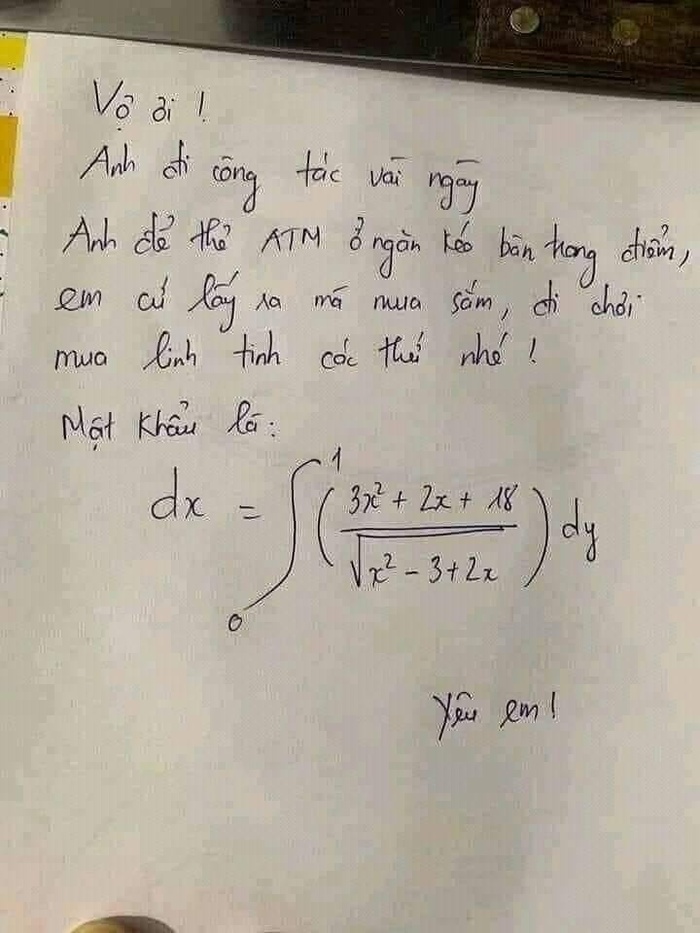 Vợ ơi !
Anh đi công tác vài ngày
Anh để thẻ ATM ở ngăn kéo bàn trang điểm,
em cứ lấy ra mà mua sắm, đi chơi
mua linh tinh các thứ nhé !
Mật khẩu là:
dx = ∫₀¹ ( (3x² + 2x + 18) / √(x² - 3 + 2x) ) dy
Yêu em !